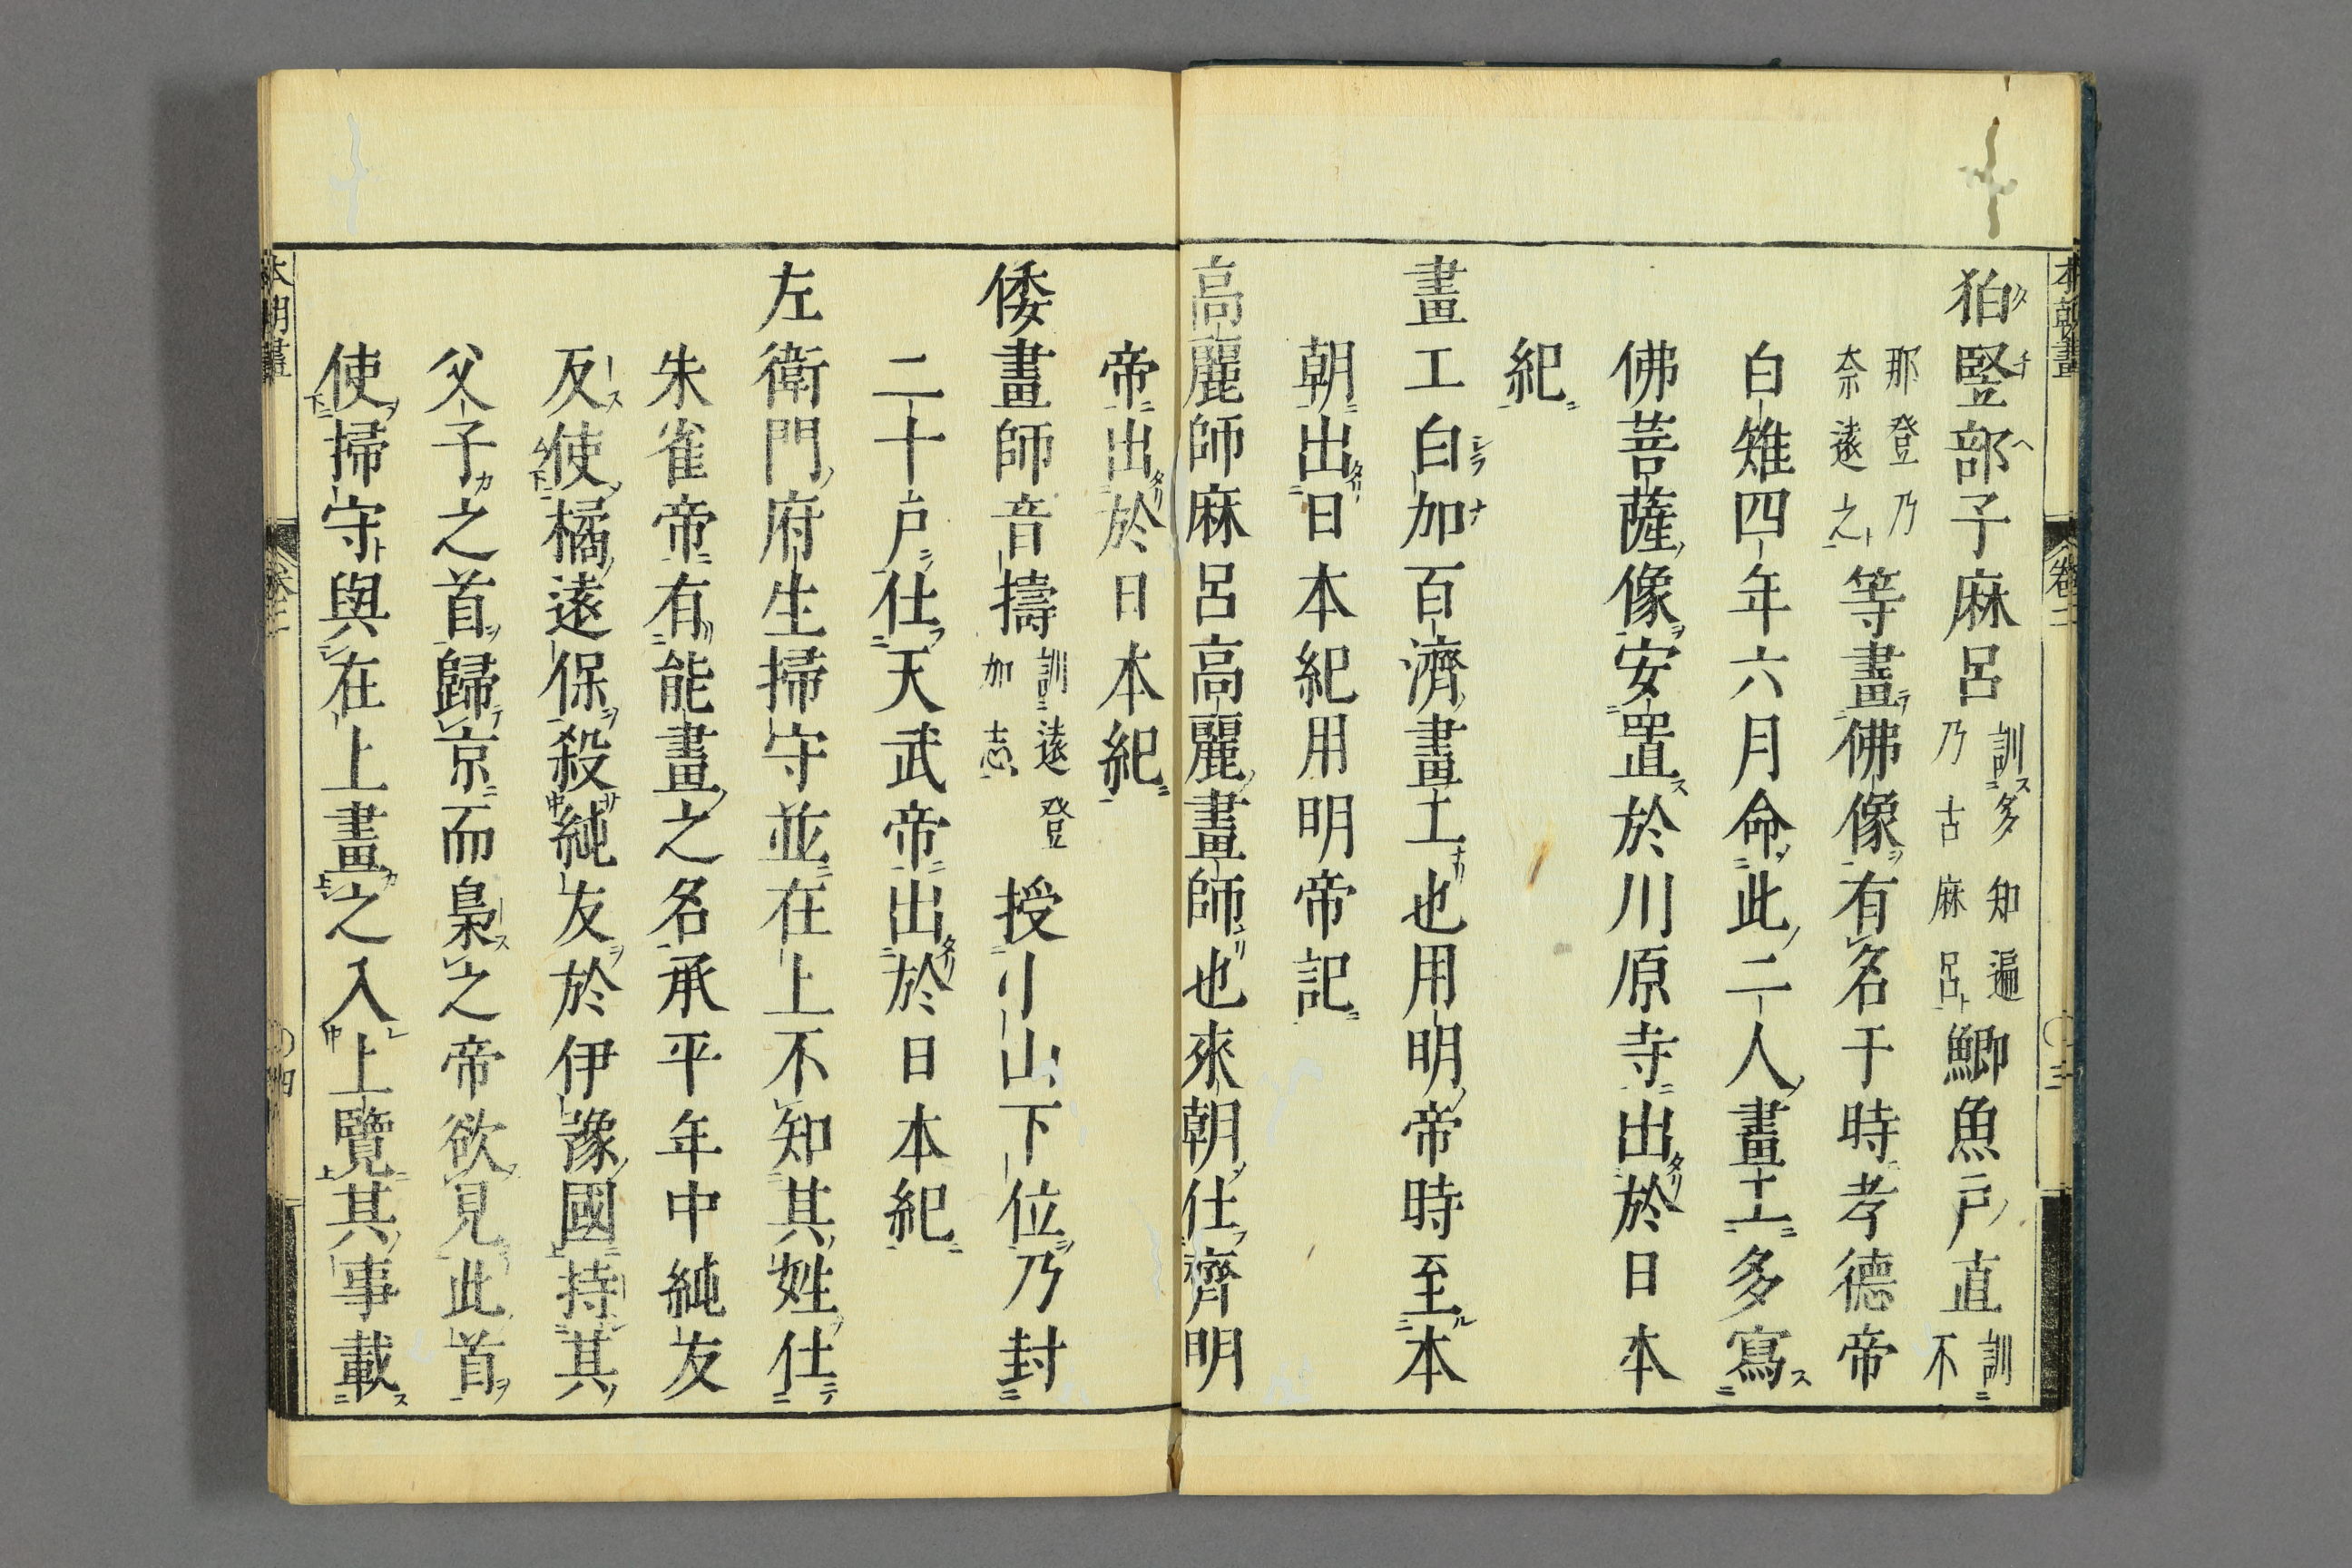 本朝畫　卷二　〇三
狛竪部子麻呂訓多知遍乃古麻呂鯽魚戸直訓不
那登乃奈遠之等畫佛像有名于時孝德帝
白雉四年六月命此二人畫工多寫
佛菩薩像安置於川原寺出於日本
紀
畫工白加百濟畫工也用明帝時至本
朝出日本紀用明帝記
高麗師麻呂高麗畫師也來朝仕齊明
帝出於日本紀
倭畫師音擣訓遠登加志授小山下位乃封
二十戸仕天武帝出於日本紀
左衛門府生掃守並在上不知其姓仕
朱雀帝有能畫之名承平年中純友
反使橘遠保殺純友於伊豫國持其
父子之首歸京而梟之帝欲見此首
使掃守與在上畫之入上覽其事載
本朝畫　卷二　〇四